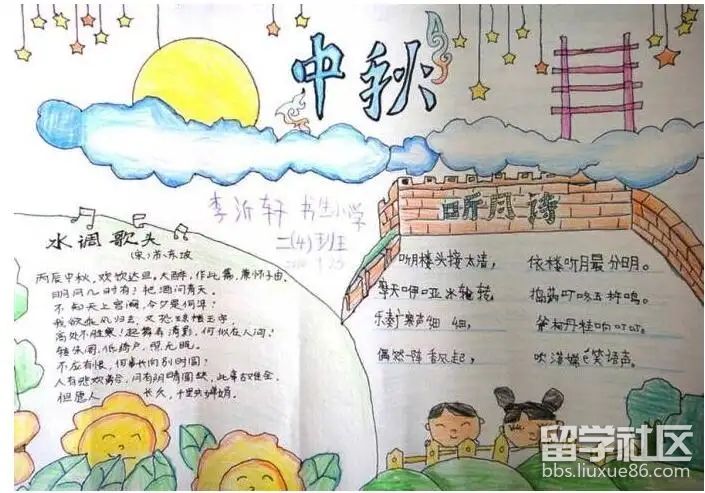 中秋
李沂轩 书生小学
二(4)班
水调歌头
(宋)苏东坡
丙辰中秋,欢饮达旦,大醉,作此篇,兼怀子由。
明月几时有?把酒问青天。
不知天上宫阙,今夕是何年?
我欲乘风归去,又恐琼楼玉宇,
高处不胜寒!起舞弄清影,何似在人间?
转朱阁,低绮户,照无眠。
不应有恨,何事长向别时圆?
人有悲欢离合,月有阴晴圆缺,此事古难全。
但愿人 长久,千里共婵娟。
听月诗
听月楼头接太清, 依楼听月最分明。
摩天咿哑冰轮转, 捣药叮咚玉杵鸣。
乐奏 声细细, 斧柯丹桂响叮叮。
偶然一阵 风起, 吹落嫦娥笑语声。
留学社区
bbs.liuxue86.com